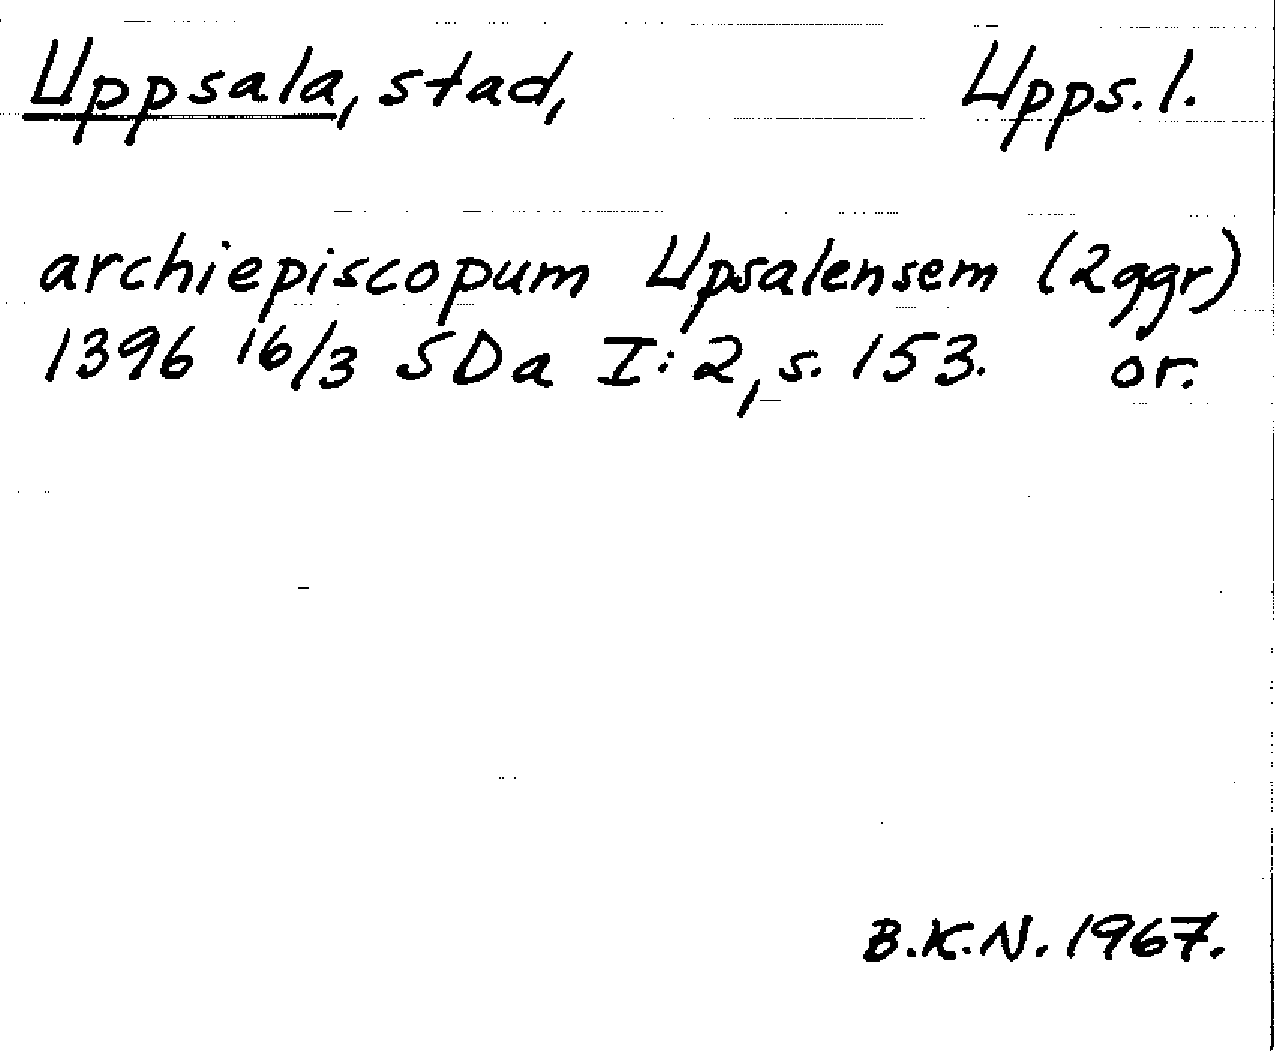 Uppsala, stad, Upps.l.
archiepiscopum Upsalensem (2ggr)
1396 16/3 SDa I:2, s. 153. or.
B.K.N. 1967.